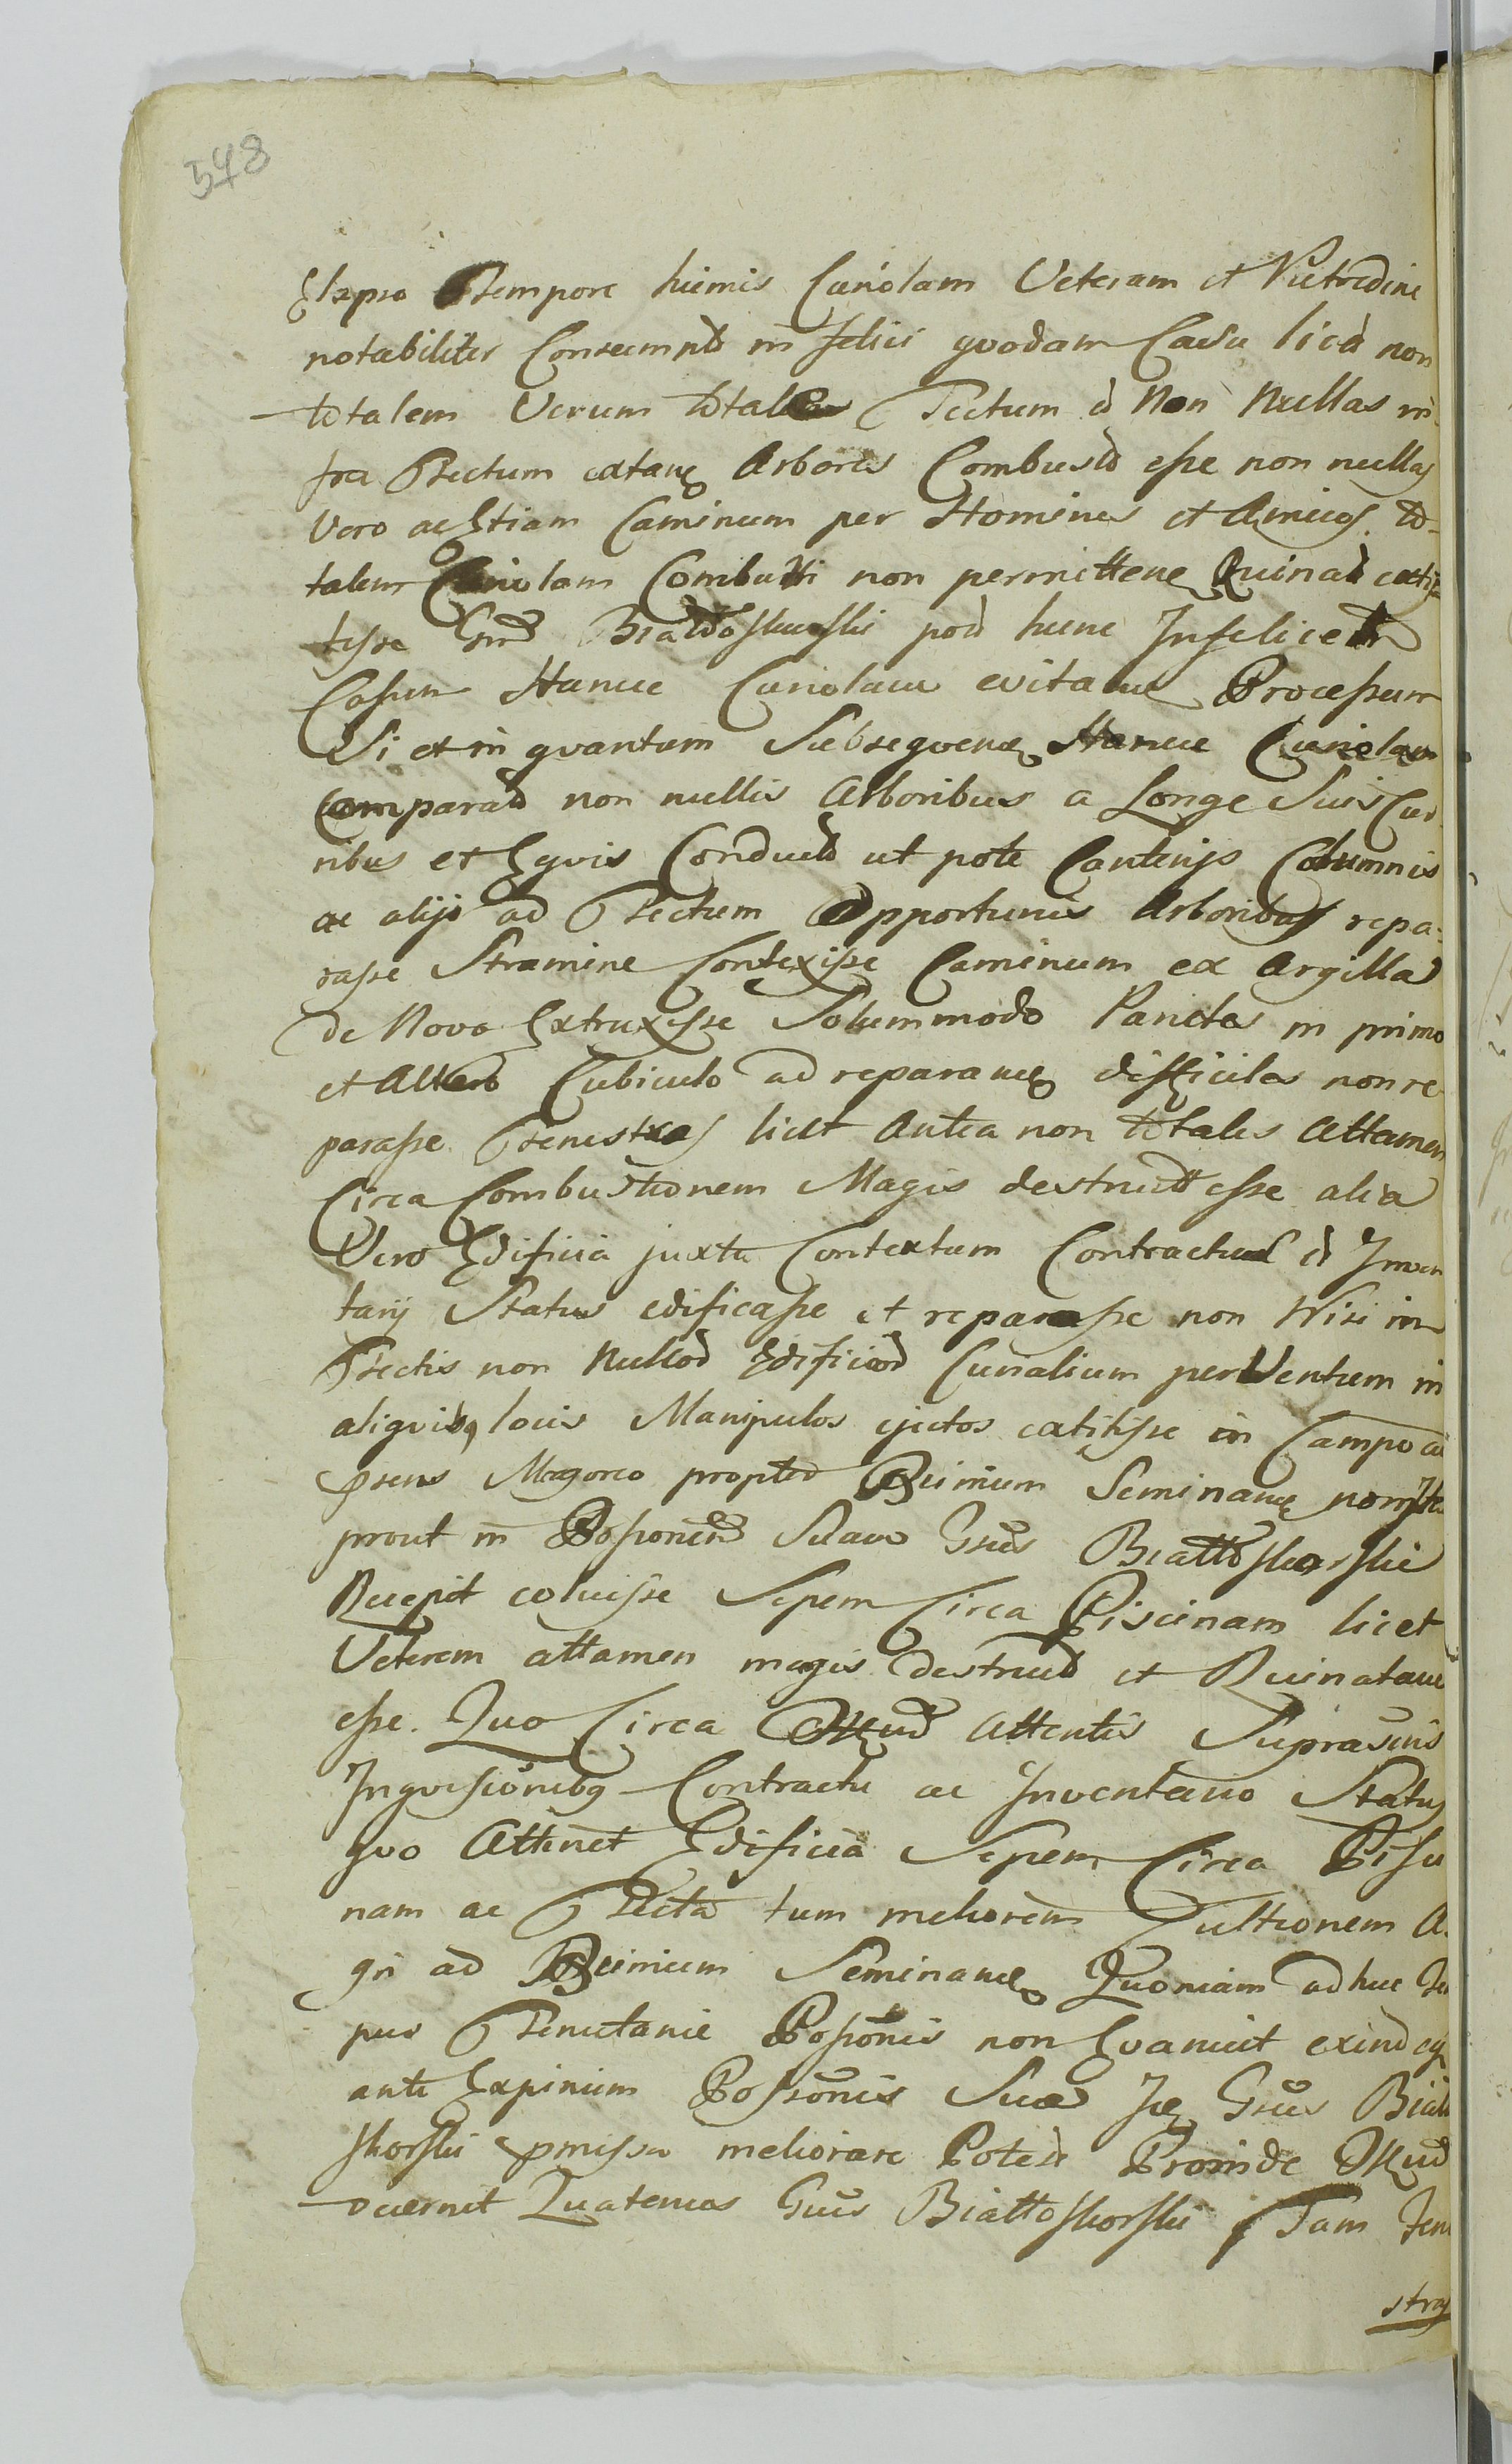 548
Elapso Tempore hiemis Curiolam Veteram et Putredine
notabiliter Consumptā infelici quodam Casu licet non
totalem Verum totale Tectum et Non Nullas in
fra Tectum extan Arbores Combustas esse non nullas
Vero ac Etiam Caminum per Homines et Amicos to-
talem Curiolam Comburi non permitten Ruinat exti-
tisse Gnŭs Białłoskorski post hunc Infelicem
Casum Hancce Curiolam evitando Processum
Si et in quantum Subsequen Hancce Curiolam
Comparatis non nullis Arboribus a Longe Suis Cur
ribus et Equis Conductis ut pote Canterijs Columnis
ac alijs ad Tectum Opportunis Arboribus repa=
rasse Stramine Contexisse Caminum ex Argilla
de Novo Extruxisse Solummodo Parietes in primo
et Altero Cubiculo ad reparan difficiles non re
parasse Fenestras licet Antea non totales Attamen
Circa Combustionem Magis destructas esse alia
Vero Edificia juxta Contextum Contractus et Inven
tarij Status edificasse et reparasse non Nisi in
Tectis non Nullor Edificior Curialium per Ventum in
aliquibq locis Manipulos ejectos extitisse in Campo
Magoreo propter Seminan non
prout in Possionem Suam Gnŭs Białłoskorski
Recepit coluisse Sepem Circa Piscinam licet
Veterem attamen magis destructā et Ruinatam
esse. Quo Circa Offiŭm Attentis Suprascris
Inquisiōnibq Contractu ac Inventario Status
quo Attinet Edificia Sepem Circa Pisci
nam ac Tecta tum meliorem Cultionem A
gri ad Seminan Quoniam adhuc Tem
pus Tenutariæ Possōnis non Evanuit
ante Expirium Possōnis Suæ Gnŭs Biało
skorski pmissa meliorare Potest Proinde Offiŭm
decernit Quatenus Gnŭs Białłoskorski Tam Fene
stras